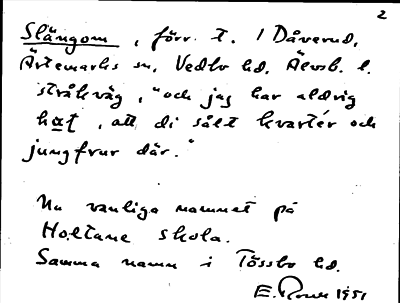 2
Slängom, förr t. 1 Dåverud,
Ärtemarks sn, Vedbo hd, Älvsb. l.
stråkväg, "och jag har aldrig
hat, att di sålt kvartér och
jungfrur där."
Nu vanliga namnet på
Holtane skola.
Samma namn i Tössbo hd.
E. 1951